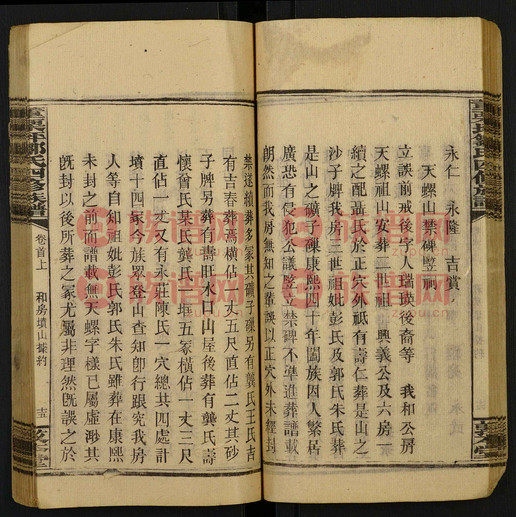 永仁　永隆　吉賞
天螺山禁碑竪祠
立議前戒後字人瑞瑛後裔等　我和公房
天螺祖山安葬二世祖　興義公及六房二
續之配聶氏於正穴外祇有壽仁葬是山之
沙子牌我房三世祖妣彭氏及郭氏朱氏葬
是山之礦子𥕢康熙四十年闔族因人繁居
廣恐有侵犯公議竪立禁碑不準進葬譜載
朗然而我房無知之輩誤以正穴外未經封
禁遂續葬多冢其礦子𥕢另有龔氏王氏吉
有吉春葬焉橫佔一丈五尺直佔二丈其砂
子牌另葬有壽旺水口山屋後葬有龔氏壽
懷曾氏葉氏龔氏一堆五冢橫佔一丈三尺
直佔一丈又有永莊陳氏一穴總共四處計
墳十四冢今族眾登山查知卽行跟究我房
人等自知祖妣彭氏郭氏朱氏雖葬在康熙
未封之前而譜載無天螺字樣已屬虛渺其
旣封以後所葬之冢尤屬非理然旣誤之於
鄒氏四修族譜
卷首上
和房墳山據約
鄒氏四修族譜
族谱网
zupu.cn
族谱网
zupu.cn